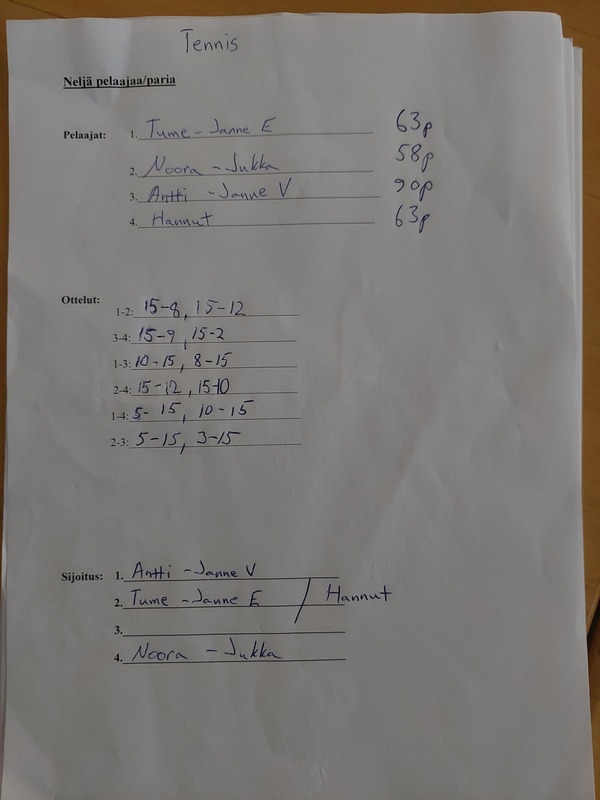 Tennis
Neljä pelaajaa/paria
Pelaajat: 1. Tume - Janne E 63p
2. Noora - Jukka 58p
3. Antti - Janne V 90p
4. Hannut 63p
Ottelut:
1-2: 15-8, 15-12
3-4: 15-9, 15-2
1-3: 10-15, 8-15
2-4: 15-12, 15-10
1-4: 5-15, 10-15
2-3: 5-15, 3-15
Sijoitus: 1. Antti - Janne V
2. Tume - Janne E / Hannut
3.
4. Noora - Jukka